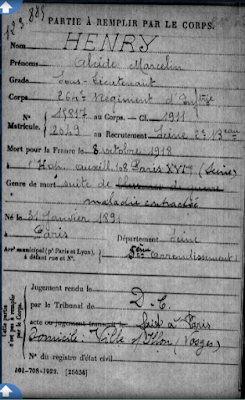 183.885
PARTIE À REMPLIR PAR LE CORPS.
Nom HENRY
Prénoms Alcide Marcelin
Grade Sous-Lieutenant
Corps 264e Régiment d'Inf
N° 15817 au Corps. — Cl. 1911
Matricule. 2049 au Recrutement Seine 2e Beau
Mort pour la France le 8 octobre 1918
à l'Hop. auxill. 48 Paris XVI (Seine)
Genre de mort suite de blessures de guerre
maladie contractée
Né le 31 Janvier 189
à Paris Département Seine
Arrt municipal (pr Paris et Lyon), 5ème Arrondissement
à défaut rue et N°.
Cette partie n'est pas à remplir par le Corps.
Jugement rendu le
par le Tribunal de D. C.
acte ou jugement transcrit le fait à Paris
Domicile: Ville s/ Illon (Vosges)
N° du registre d'état civil
101-708-1922. [26434]